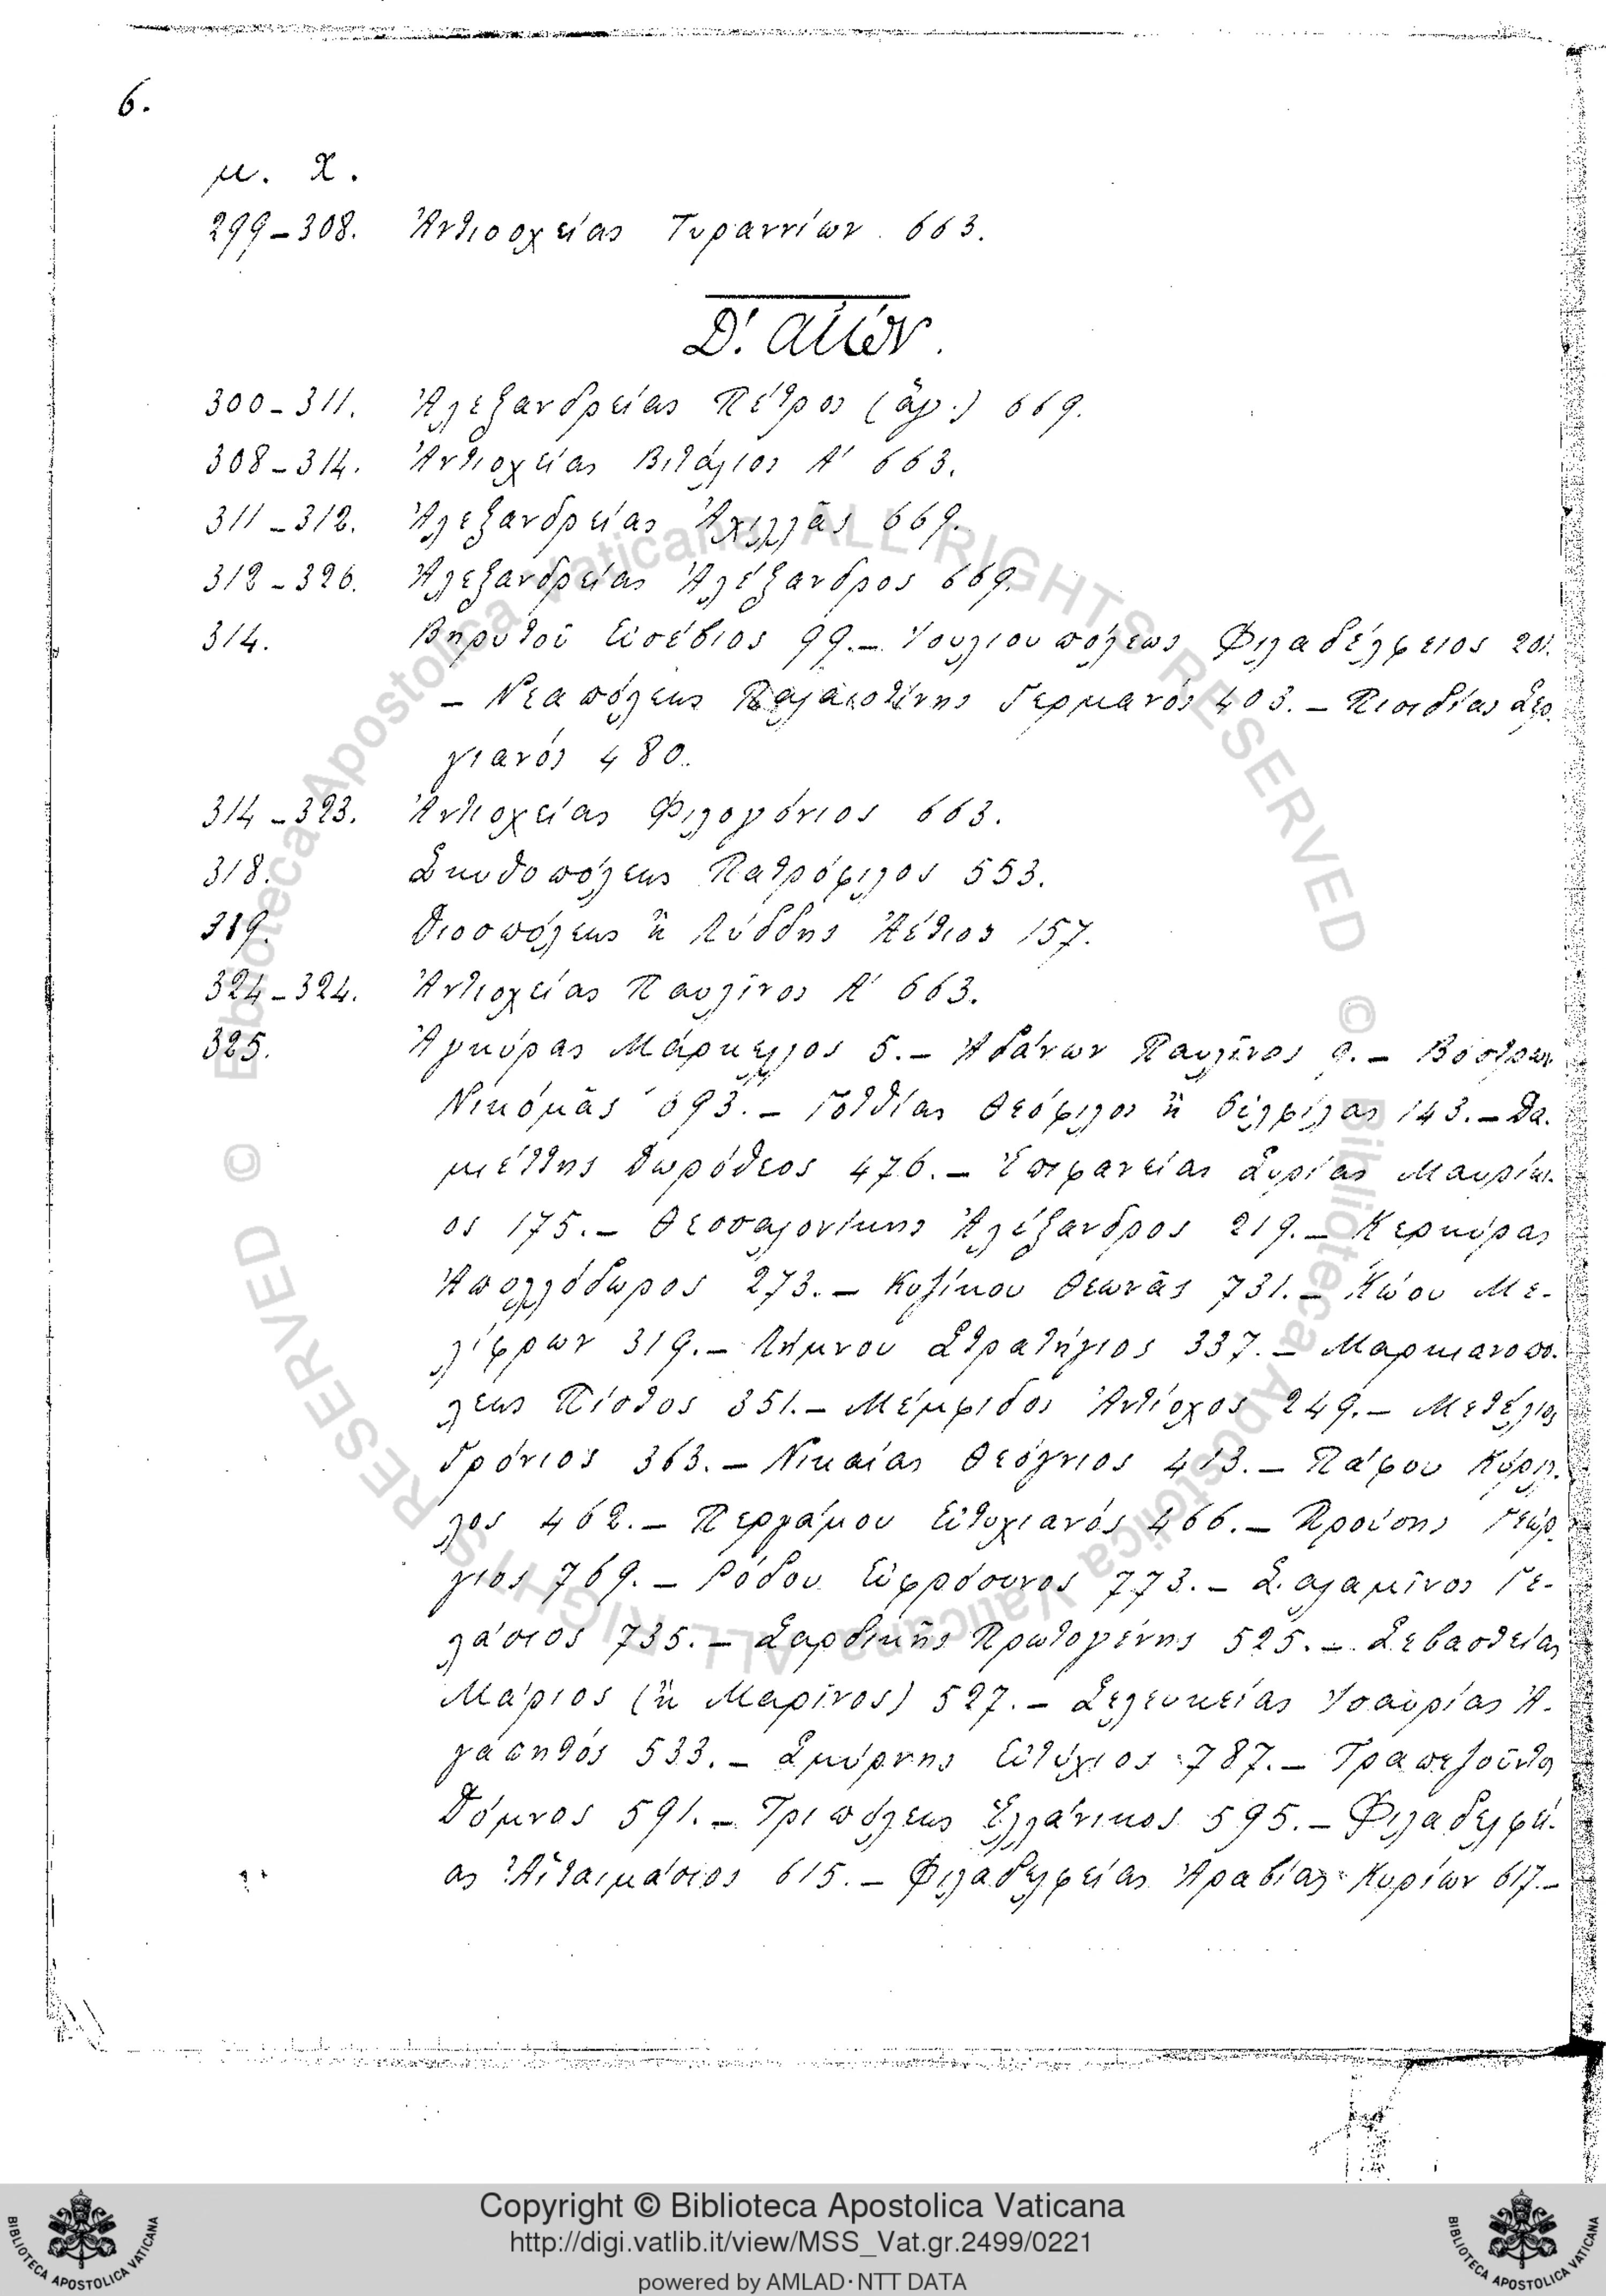 6.
μ. Χ.
299-308. Ἀντιοχείας Τυραννίων 663.
Δ'. αἰών.
300-311. Ἀλεξανδρείας Πέτρος (ἅγ.) 669.
308-314. Ἀντιοχείας Βιτάλιος Α' 663.
311-312. Ἀλεξανδρείας Ἀχιλλᾶς 669.
312-326. Ἀλεξανδρείας Ἀλέξανδρος 669.
314. Βηρυτοῦ Εὐσέβιος 99.- Ἰουλιουπόλεως Φιλαδέλφειος 201.
- Νεαπόλεως Παλαιστίνης Γερμανός 403.- Πισιδίας Σερ
γιανός 480.
314-323. Ἀντιοχείας Φιλογόνιος 663.
318. Σκυθοπόλεως Πατρόφιλος 553.
319. Διοσπόλεως ἢ Λύδδης Ἀέτιος 157.
324-324. Ἀντιοχείας Παυλῖνος Α' 663.
325. Ἀγκύρας Μάρκελλος 5.- Ἀδάνων Παυλῖνος 9.- Βόστρων
Νικόμᾶς 693.- Γοτθίας Θεόφιλος ἢ 143.- Δα.
μιέττης Δωρόθεος 476.- Ἐπιφανείας Συρίας Μαυρίκι.
ος 175.- Θεσσαλονίκης Ἀλέξανδρος 219.- Κερκύρας
Ἀπολλόδωρος 273.- Κυζίκου Θεωνᾶς 731.- Κώου Με-
λίφρων 319.- Λήμνου Στρατήγιος 337.- Μαρκιανοπο.
λεως Πίστος 351.- Μέμφιδος Ἀντίοχος 249.-
Δρόνιος 363.- Νικαίας Θεόγνιος 413.- Πάφου Κύριλ.
λος 462.- Περγάμου Εὐτυχιανός 466.- Προύσης Γεώρ
γιος 769.- Ρόδου Εὐφρόσυνος 773.- Σαλαμῖνος Γε-
λάσιος 735.- Σαρδικῆς Πρωτογένης 525.- Σεβαστείας
Μάριος (ἢ Μαρῖνος) 527.- Σελευκείας Ἰσαυρίας Ἀ-
γαπητός 533.- Σμύρνης Εὐτύχιος 787.- Τραπεζοῦντος
Δόμνος 591.- Τριπόλεως Ἑλλάνικος 595.- Φιλαδελφεί-
ας Ἀἰταιμάσιος 615.- Φιλαδελφείας Ἀραβίας Κυρίων 617.-
© Biblioteca Apostolica Vaticana ALL RIGHTS RESERVED © Biblioteca Apostolica Vaticana ALL RIGHTS RESERVED
Copyright © Biblioteca Apostolica Vaticana
http://digi.vatlib.it/view/MSS_Vat.gr.2499/0221
powered by AMLAD·NTT DATA
BIBLIOTECA APOSTOLICA VATICANA
BIBLIOTECA APOSTOLICA VATICANA